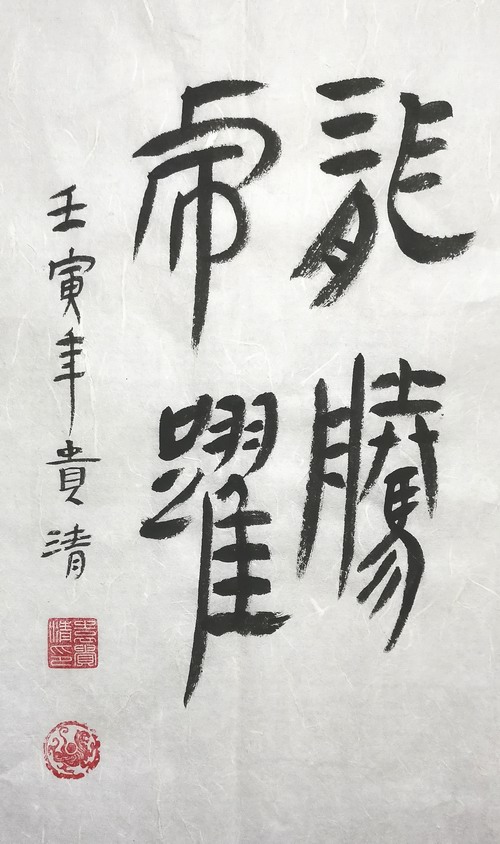 龍騰
虎躍
壬寅年貴清